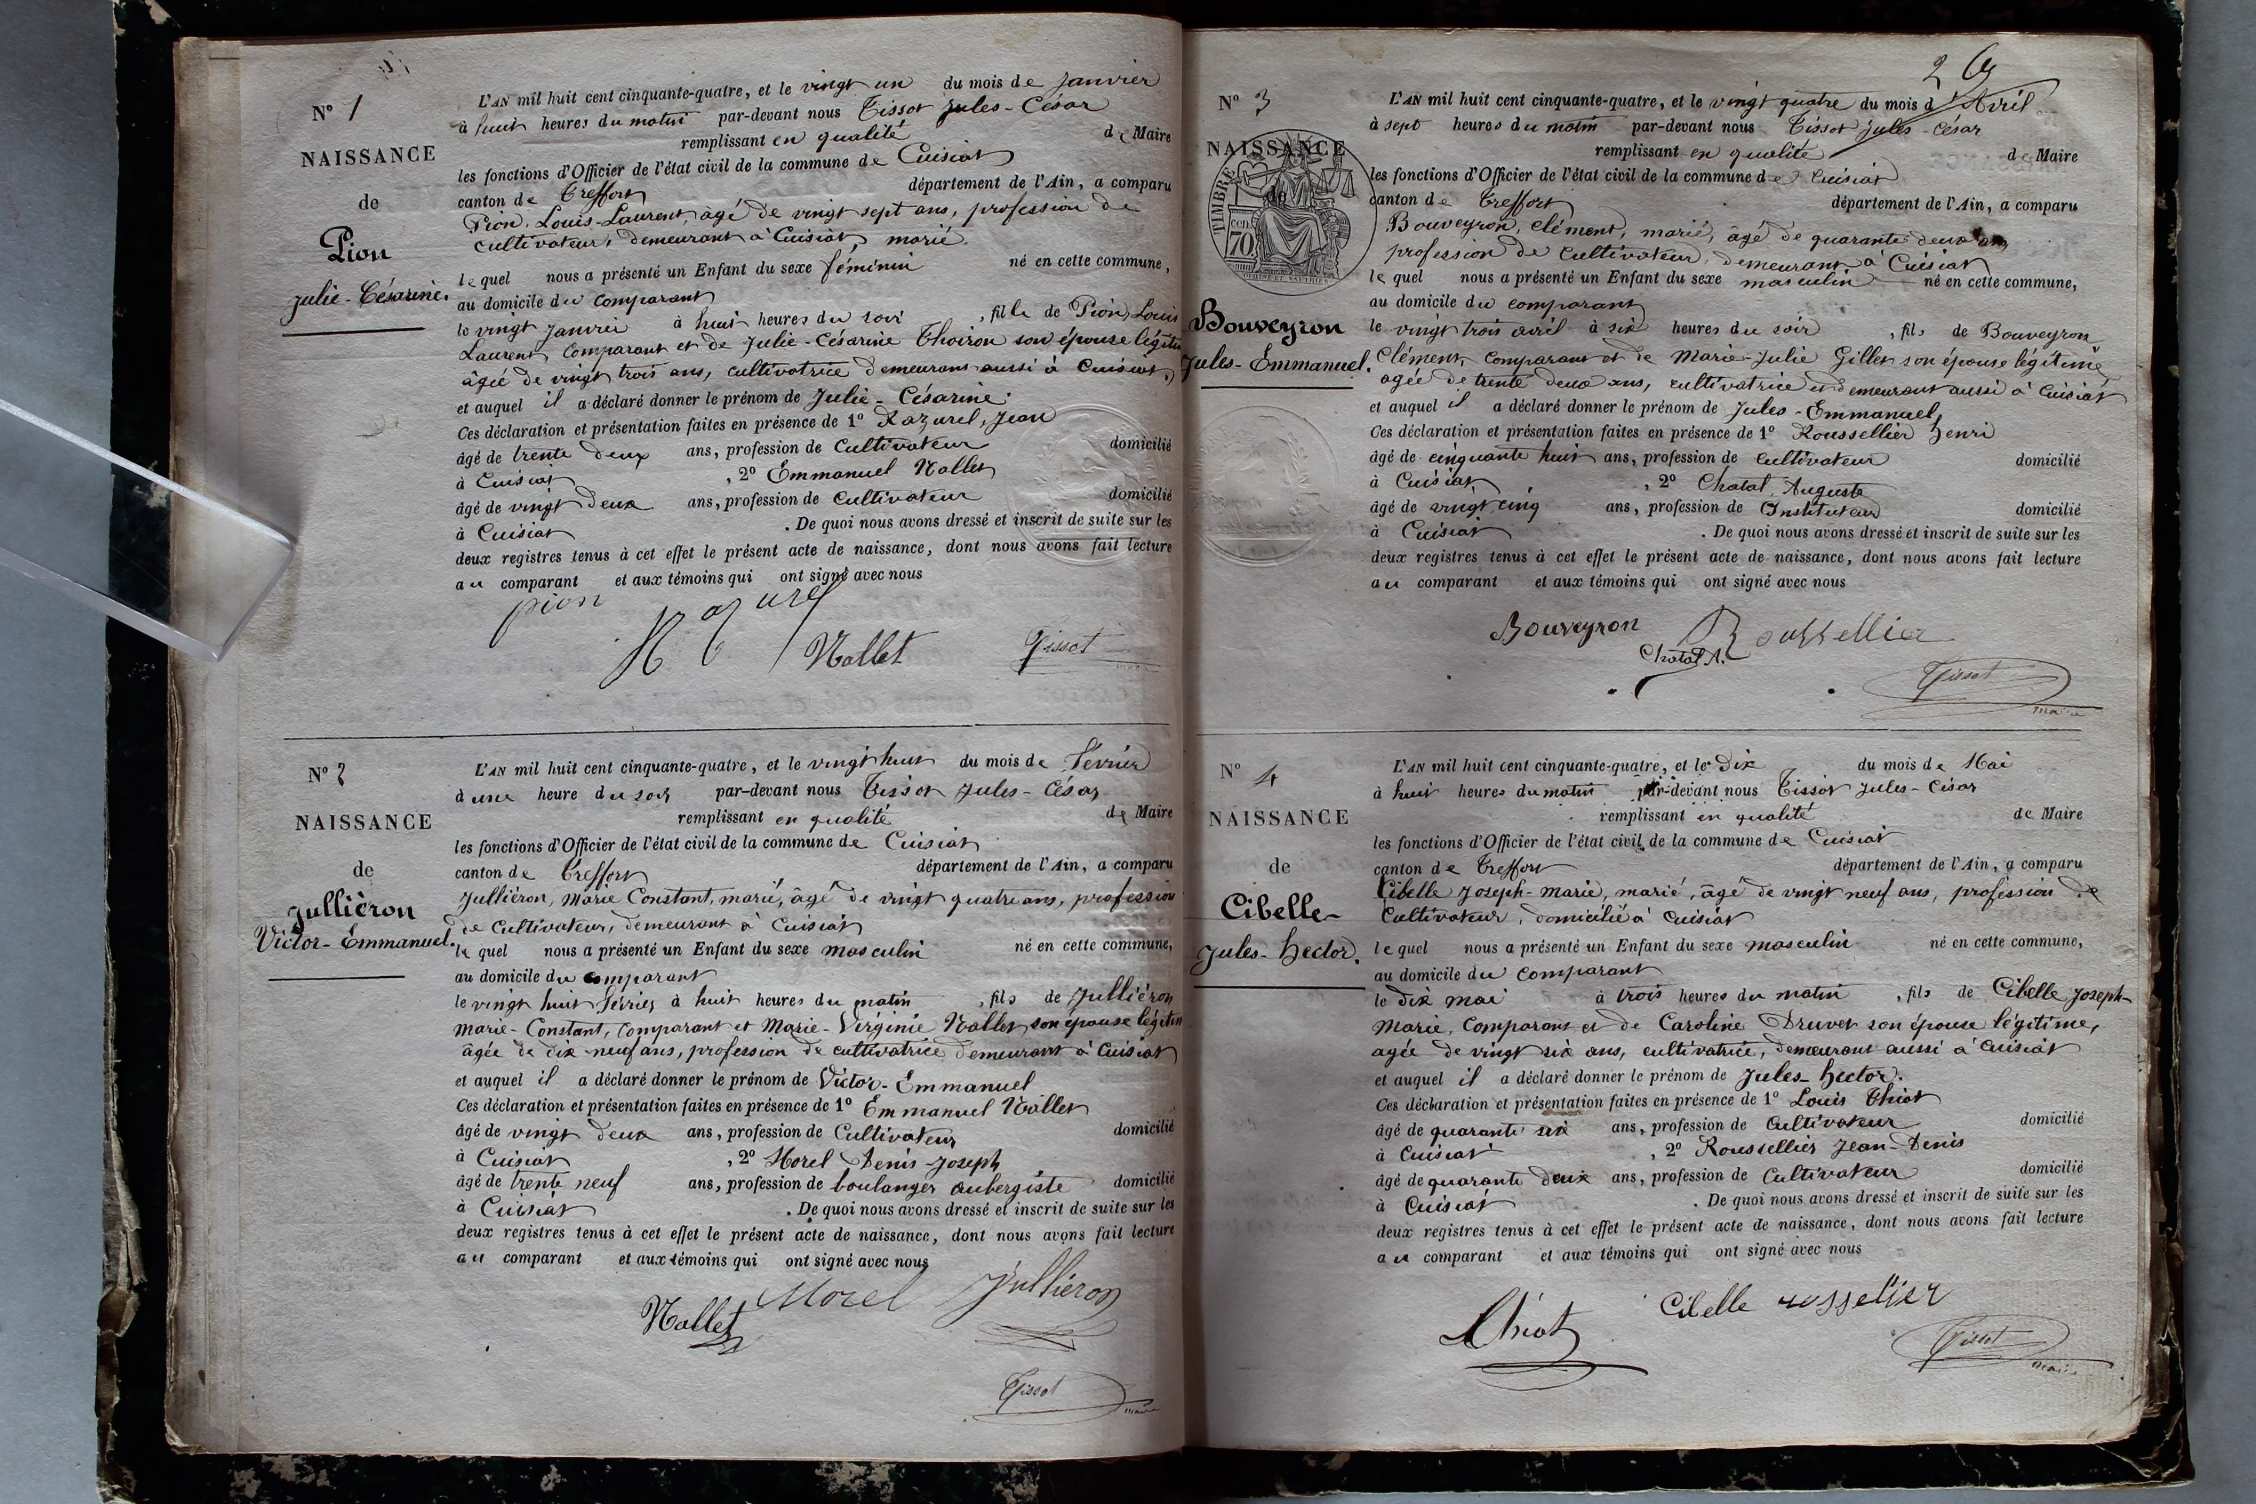 N° 1
NAISSANCE
de
Pion
Julie-Césarine.
L'AN mil huit cent cinquante-quatre, et le vingt un du mois de Janvier
à huit heures du matin par-devant nous Tissot Jules-César
remplissant en qualité de Maire
les fonctions d'Officier de l'état civil de la commune de Cuisiat
canton de Treffort département de l'Ain, a comparu
Pion, Louis-Laurent âgé de vingt sept ans, profession de
cultivateur, demeurant à Cuisiat, marié.
lequel nous a présenté un Enfant du sexe féminin né en cette commune,
au domicile du comparant
le vingt Janvier à huit heures du soir, fille de Pion, Louis
Laurent, comparant et de Julie-Césarine Thoiron son épouse légitime
âgée de vingt trois ans, cultivatrice demeurant aussi à Cuisiat,
et auquel il a déclaré donner le prénom de Julie-Césarine.
Ces déclaration et présentation faites en présence de 1° Razurel, Jean
âgé de trente deux ans, profession de cultivateur domicilié
à Cuisiat, 2° Emmanuel Nallet
âgé de vingt deux ans, profession de cultivateur domicilié
à Cuisiat. De quoi nous avons dressé et inscrit de suite sur les
deux registres tenus à cet effet le présent acte de naissance, dont nous avons fait lecture
au comparant et aux témoins qui ont signé avec nous
pion Razurel
Nallet Tissot
maire
N° 2
NAISSANCE
de
Julliéron
Victor-Emmanuel.
L'AN mil huit cent cinquante-quatre, et le vingt huit du mois de Février
à une heure du soir par-devant nous Tissot Jules-César
remplissant en qualité de Maire
les fonctions d'Officier de l'état civil de la commune de Cuisiat
canton de Treffort département de l'Ain, a comparu
Julliéron, Marie Constant, marié, âgé de vingt quatre ans, profession
de cultivateur, demeurant à Cuisiat
lequel nous a présenté un Enfant du sexe masculin né en cette commune,
au domicile du comparant
le vingt huit Février à huit heures du matin, fils de Julliéron
Marie-Constant, comparant et Marie-Virginie Nallet son épouse légitime
âgée de dix neuf ans, profession de cultivatrice demeurant à Cuisiat
et auquel il a déclaré donner le prénom de Victor-Emmanuel
Ces déclaration et présentation faites en présence de 1° Emmanuel Nallet
âgé de vingt deux ans, profession de Cultivateur domicilié
à Cuisiat, 2° Morel Denis-Joseph
âgé de trente neuf ans, profession de boulanger aubergiste domicilié
à Cuisiat. De quoi nous avons dressé et inscrit de suite sur les
deux registres tenus à cet effet le présent acte de naissance, dont nous avons fait lecture
au comparant et aux témoins qui ont signé avec nous
Nallet Morel Julliéron
Tissot
maire
2
N° 3
NAISSANCE
de
TIMBRE
cen
70
Bouveyron
Jules-Emmanuel.
L'AN mil huit cent cinquante-quatre, et le vingt quatre du mois d'Avril
à sept heures du matin par-devant nous Tissot Jules-César
remplissant en qualité de Maire
les fonctions d'Officier de l'état civil de la commune de Cuisiat
canton de Treffort département de l'Ain, a comparu
Bouveyron, Clément, marié, âgé de quarante deux ans
profession de cultivateur, demeurant à Cuisiat
lequel nous a présenté un Enfant du sexe masculin né en cette commune,
au domicile du comparant
le vingt trois avril à six heures du soir, fils de Bouveyron
Clément, comparant et de Marie-Julie Gillet son épouse légitime
agée de trente deux ans, cultivatrice et demeurant aussi à Cuisiat
et auquel il a déclaré donner le prénom de Jules-Emmanuel,
Ces déclaration et présentation faites en présence de 1° Roussellier henri
âgé de cinquante huit ans, profession de cultivateur domicilié
à Cuisiat, 2° Chatal Auguste
âgé de vingt cinq ans, profession de Instituteur domicilié
à Cuisiat. De quoi nous avons dressé et inscrit de suite sur les
deux registres tenus à cet effet le présent acte de naissance, dont nous avons fait lecture
au comparant et aux témoins qui ont signé avec nous
Bouveyron Roussellier
Chatal A.
Tissot
maire
N° 4
NAISSANCE
de
Cibelle
Jules-hector.
L'AN mil huit cent cinquante-quatre, et le Dix du mois de Mai
à huit heures du matin par-devant nous Tissot Jules-César
remplissant en qualité de Maire
les fonctions d'Officier de l'état civil de la commune de Cuisiat
canton de Treffort département de l'Ain, a comparu
Cibelle Joseph-Marie, marié, âgé de vingt neuf ans, profession de
Cultivateur, domicilié à Cuisiat
lequel nous a présenté un Enfant du sexe masculin né en cette commune,
au domicile du comparant
le dix mai à trois heures du matin, fils de Cibelle Joseph-
Marie, comparant et de Caroline Druvet son épouse légitime,
agée de vingt six ans, cultivatrice, demeurant aussi à Cuisiat
et auquel il a déclaré donner le prénom de Jules-hector.
Ces déclaration et présentation faites en présence de 1° Louis Thiot
âgé de quarante six ans, profession de Cultivateur domicilié
à Cuisiat, 2° Roussellier Jean-Denis
âgé de quarante deux ans, profession de Cultivateur domicilié
à Cuisiat. De quoi nous avons dressé et inscrit de suite sur les
deux registres tenus à cet effet le présent acte de naissance, dont nous avons fait lecture
au comparant et aux témoins qui ont signé avec nous
Thiot Cibelle
Tissot
maire